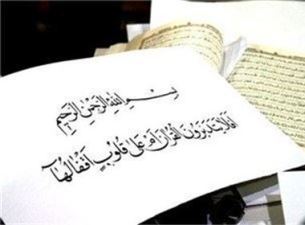 بسم الله الرحمن الرحيم
افلا يتدبرون القرآن ام على قلوب اقفالها